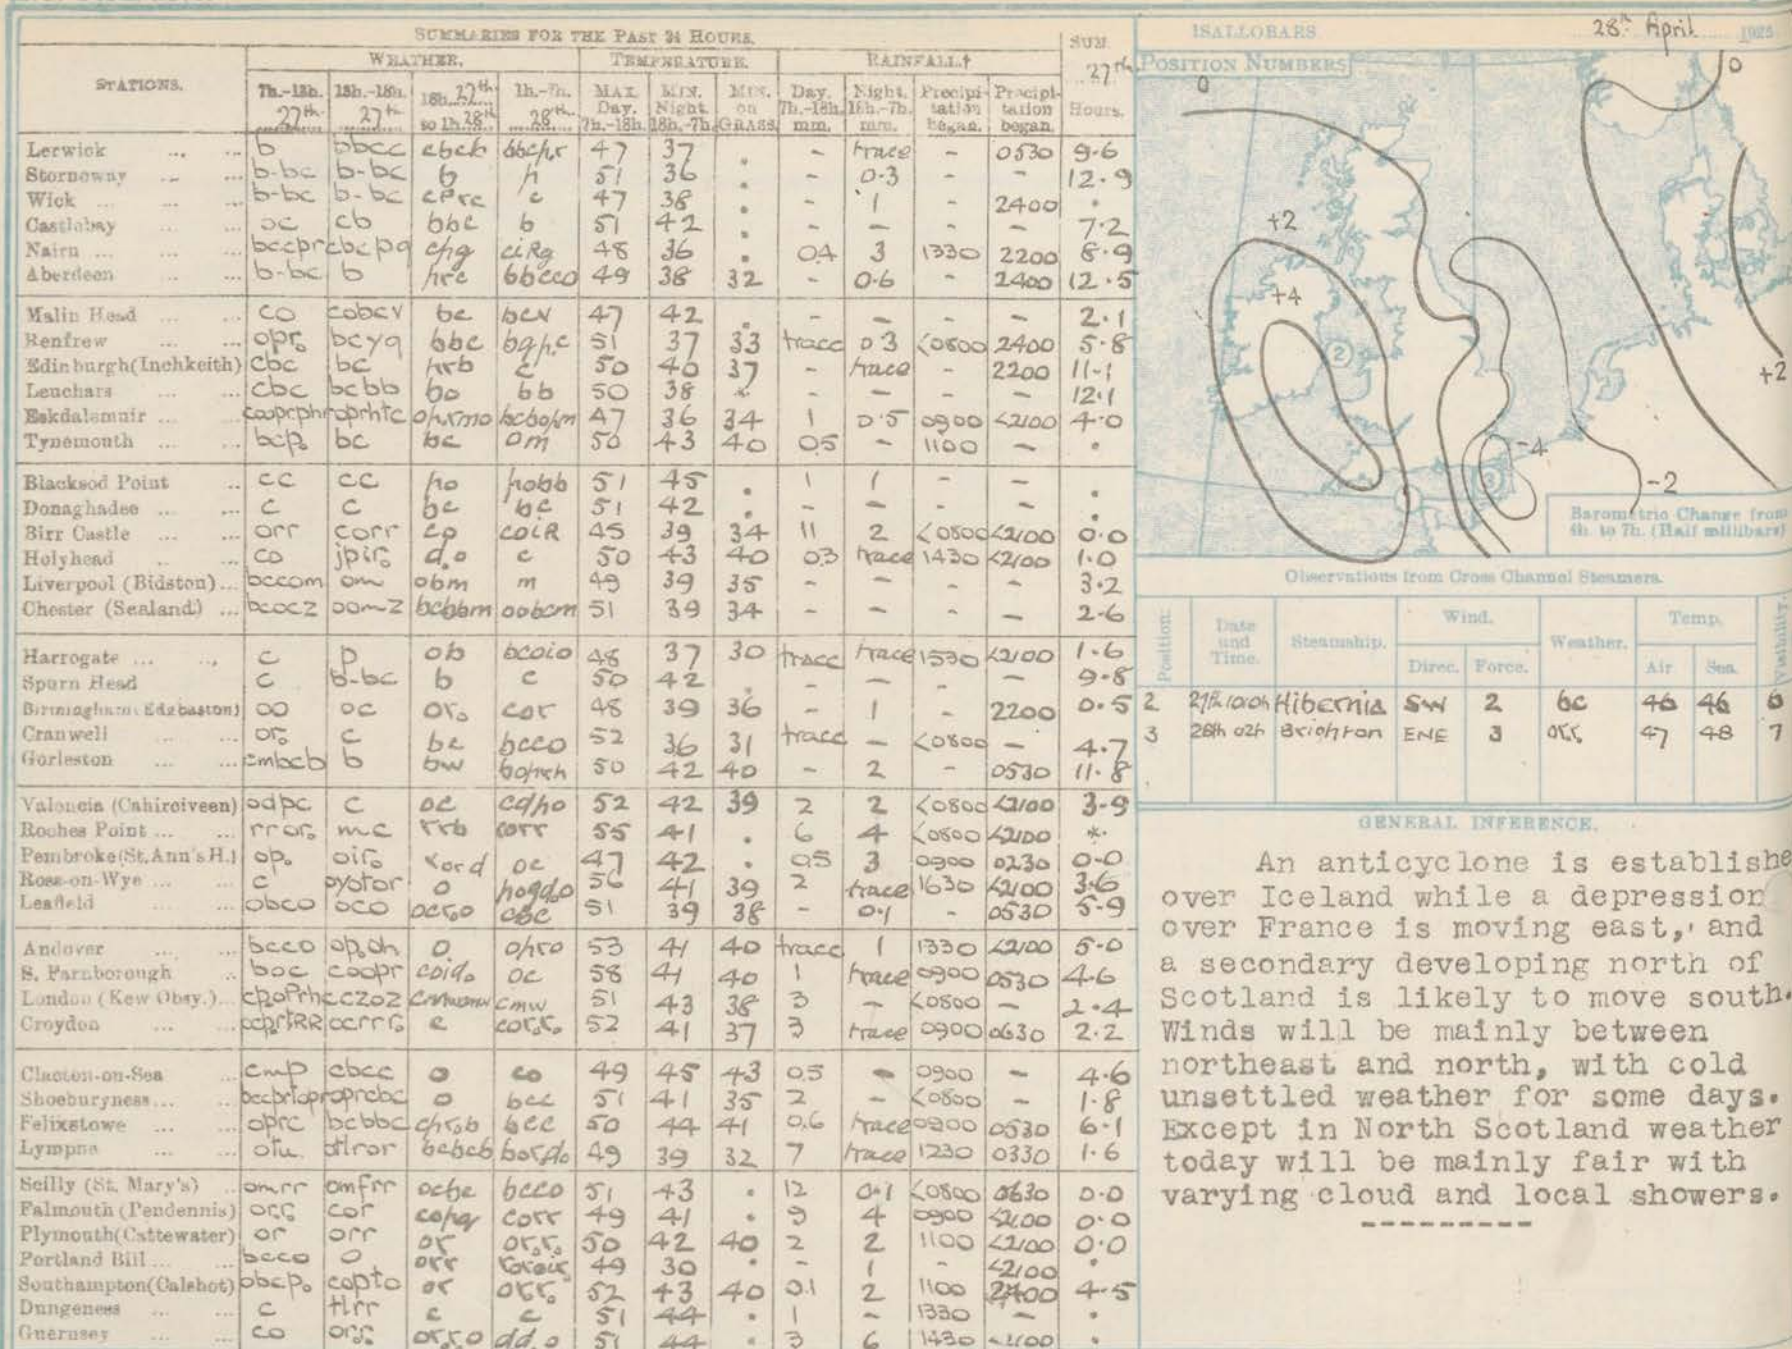 SUMMARIES FOR THE PAST 24 HOURS.
STATIONS. WEATHER. TEMPERATURE. RAINFALL† SUN.
7h.-13h. 27th 13h.-18h. 27th 18h. 27th to 1h. 28th 1h.-7h. 28th MAX. Day. 7h.-18h. MIN. Night. 18h.-7h. MIN. on GRASS. Day. 7h.-18h. mm. Night. 18h.-7h. mm. Precipitation began. Precipitation began. 27th Hours.
Lerwick b bbcc 47 37 . - trace - 0530 9.6
Stornoway b-bc b-bc b 51 36 . - 0.3 - - 12.9
Wick b-bc b-bc c 47 38 . - 1 - 2400 .
Castlebay cb bbc b 51 42 . - - - - 7.2
Nairn 48 36 . 04 3 1330 2200 8.9
Aberdeen b-bc b bbcco 49 38 32 - 0.6 - 2400 12.5
Malin Head co cobcv bc bcv 47 42 . - - - - 2.1
Renfrew bcyq bbc 51 37 33 trace 03 <0800 2400 5.8
Edinburgh(Inchkeith) cbc bc c 50 40 37 - trace - 2200 11.1
Leuchars cbc bcbb bo bb 50 38 - - - - 12.1
Eskdalemuir 47 36 34 1 0.5 0900 <2100 4.0
Tynemouth bcp. bc bc om 50 43 40 05 - 1100 - .
Blacksod Point cc cc 51 45 . 1 1 - - .
Donaghadee c c bc bc 51 42 . - - - - .
Birr Castle orr corr cp coiR 45 39 34 11 2 <0800 <2100 0.0
Holyhead co d.o c 50 43 40 03 trace 1430 <2100 1.0
Liverpool (Bidston) bccom om obm m 49 39 35 - - - - 3.2
Chester (Sealand) bcocz oomz bcbbm oobcm 51 39 34 - - - - 2.6
Harrogate c p ob bcoio 48 37 30 trace trace 1530 <2100 1.6
Spurn Head c b-bc b c 50 42 . - - - - 9.8
Birmingham (Edgbaston) oo oc or. cor 48 39 36 - 1 - 2200 0.5
Cranwell or. c bc bcco 52 36 31 trace - <0800 - 4.7
Gorleston cmbcb b bw 50 42 40 - 2 - 0530 11.8
Valencia (Cahirciveen) odpc c oc 52 42 39 2 2 <0800 <2100 3.9
Roches Point mc rrb corr 55 41 . 6 4 <0800 <2100 *
Pembroke(St. Ann's H.) op. oir. oc 47 42 . 05 3 0900 0230 0.0
Ross-on-Wye c o 56 41 39 2 trace 1630 <2100 3.6
Leafield obco oco cbc 51 39 38 - 0.1 - 0530 5.9
Andover bcco o. 53 41 40 trace 1 1330 <2100 5.0
S. Farnborough boc coopr coid. oc 58 41 40 1 trace 0900 0530 4.6
London (Kew Obsy.) cmw 51 43 38 3 - <0800 - 2.4
Croydon c 52 41 37 3 trace 0900 0630 2.2
Clacton-on-Sea cmp cbcc o co 49 45 43 05 - 0900 - 4.6
Shoeburyness o bcc 51 41 35 2 - <0800 - 1.8
Felixstowe oprc bcbbc bcc 50 44 41 0.6 trace 0900 0530 6.1
Lympne bcbcb 49 39 32 7 trace 1230 0330 1.6
Scilly (St. Mary's) omrr omfrr ocbc bcco 51 43 . 12 0.1 <0800 0630 0.0
Falmouth (Pendennis) cor corr 49 41 . 9 4 0900 <2100 0.0
Plymouth(Cattewater) or orr or or.r. 50 42 40 2 2 1100 <2100 0.0
Portland Bill bcco o orr 49 30 . - 1 - <2100 .
Southampton(Calshot) obcp. copto or 52 43 40 0.1 2 1100 2400 4.5
Dungeness c tlrr c c 51 44 . 1 - 1330 - .
Guernsey co 51 44 . 3 6 1430 <2100 .
ISALLOBARS 28th April 1925
POSITION NUMBERS
0
0
+2
+4
2
+2
-4
3
-2
Barometric Change from
4h. to 7h. (Half millibars)
Observations from Cross Channel Steamers.
Position. Date and Time. Steamship. Wind. Direc. Force. Weather. Temp. Air Sea. Visibility.
2 Hibernia SW 2 bc 46 46 6
3 28th 02h Brighton ENE 3 47 48 7
GENERAL INFERENCE.
An anticyclone is establishe
over Iceland while a depression
over France is moving east, and
a secondary developing north of
Scotland is likely to move south.
Winds will be mainly between
northeast and north, with cold
unsettled weather for some days.
Except in North Scotland weather
today will be mainly fair with
varying cloud and local showers.